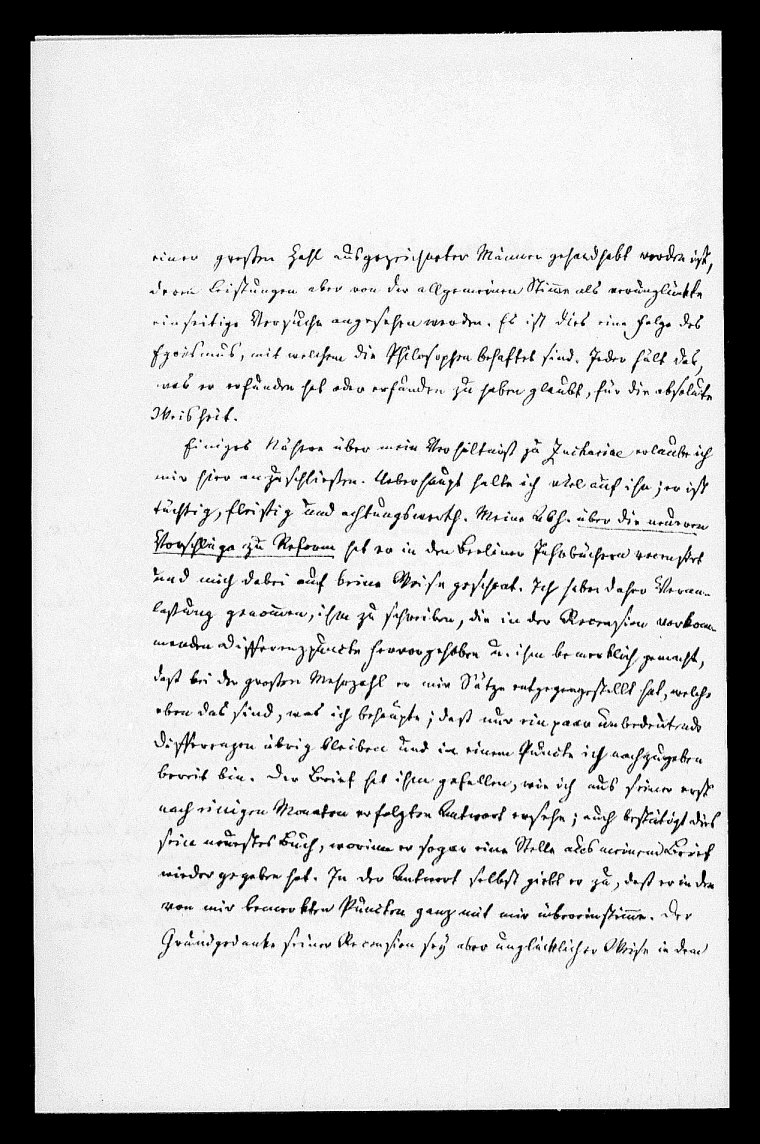 einer großen Zahl ausgezeichneter Männer gehandhabt worden ist,
deren Leistungen aber von der allgemeinen Stimme als verunglückte
einseitige Versuche angesehen werden. Es ist dies eine Folge des
Egoismus, mit welchem die Philosophen behaftet sind. Jeder hält das,
was er erfunden hat oder erfunden zu haben glaubt, für die absolute
Weisheit.
Einiges Nähere über mein Verhältniß zu Zachariae erlaube ich
mir hier anzuschließen. Ueberhaupt halte ich viel auf ihn; er ist
tüchtig, fleißig und achtungswerth. Meine Abh. über die neueren
Vorschläge zu Reform hat er in den Berliner Jahrbüchern recensirt
und mich dabei auf keine Weise geschont. Ich habe daher Veran-
lassung genommen, ihm zu schreiben, die in der Recension vorkom-
menden Differenzpuncte hervorgehoben u. ihm bemerklich gemacht,
daß bei der großen Mehrzahl er mir Sätze entgegengestellt hat, welche
eben das sind, was ich behaupte; daß nur ein paar unbedeutende
Differenzen übrig bleiben und in einem Puncte ich nachzugeben
bereit bin. Der Brief hat ihm gefallen, wie ich aus seiner erst
nach einigen Monaten erfolgten Antwort ersehe; auch bestätigt dies
sein neuestes Buch, worinn er sogar eine Stelle aus meinem Brief
wieder gegeben hat. In der Antwort selbst giebt er zu, daß er in den
von mir bemerkten Puncten ganz mit mir übereinstimme. Der
Grundgedanke seiner Recension sey aber unglücklicher Weise in dem